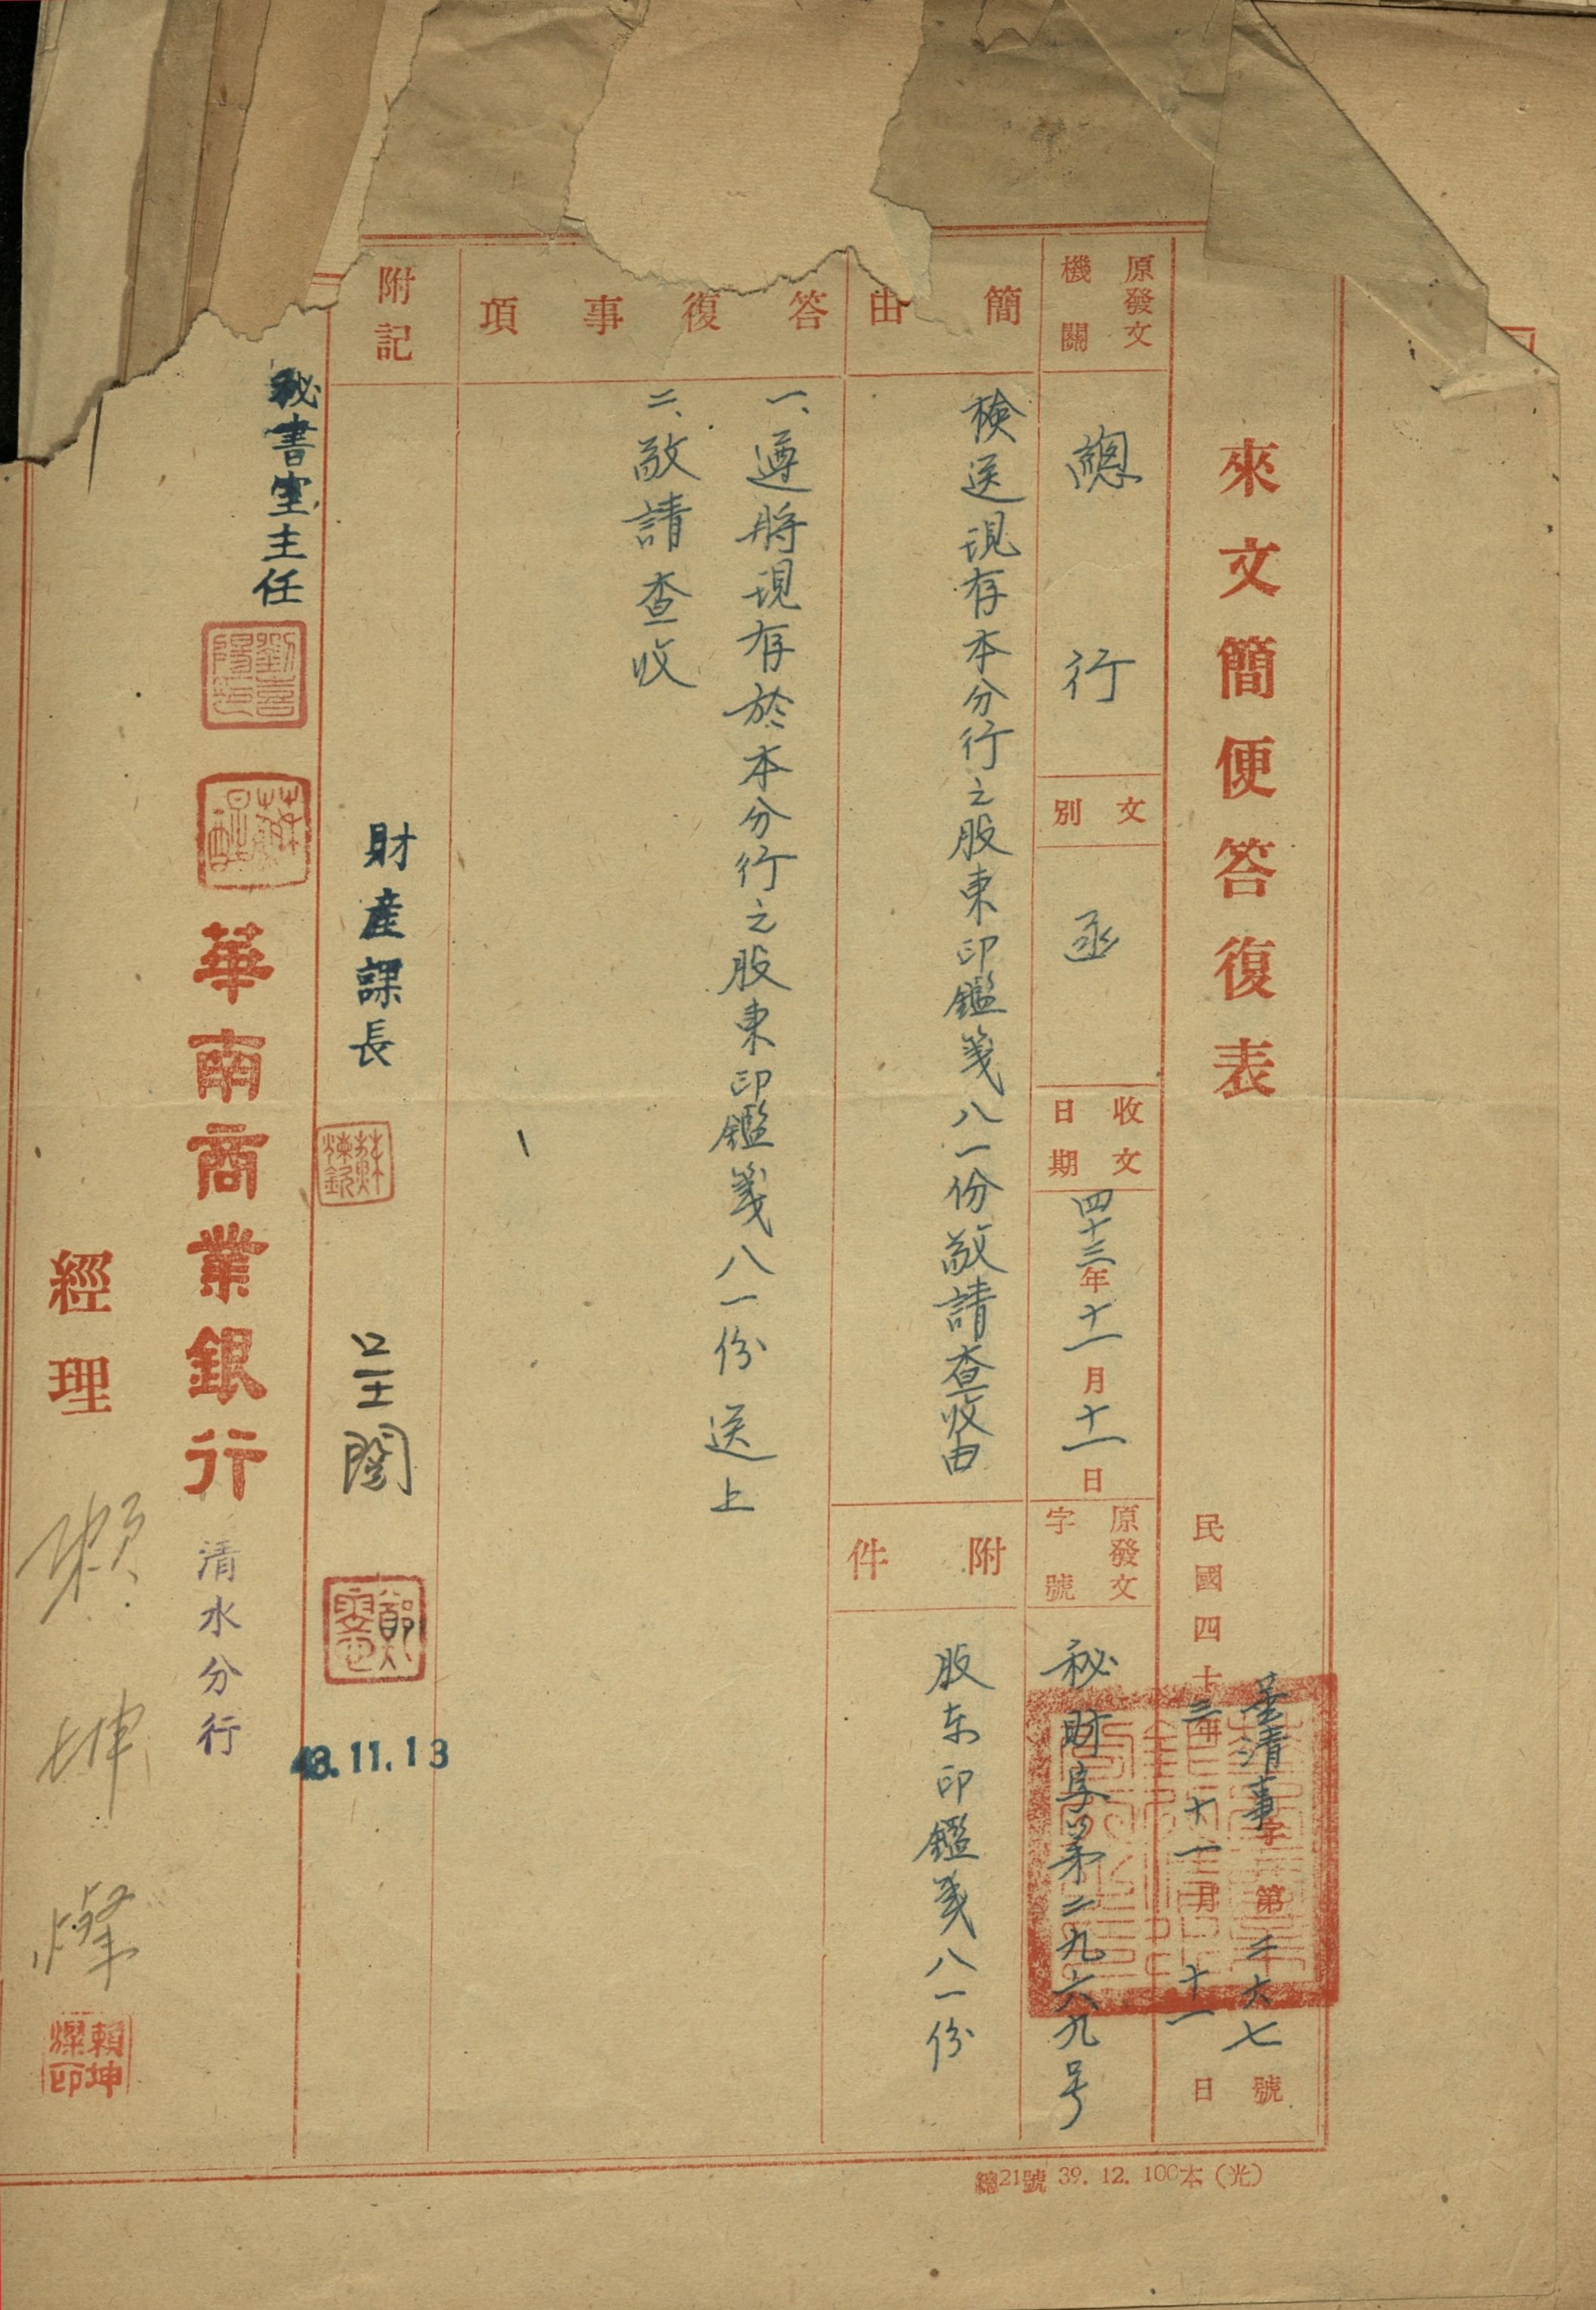 來文簡便答復表
華清事字第三六七號
民國四十三年十一月十一日
原發文機關
總行
文別
函
收文日期
四十三年十一月十一日
原發文字號
秘財身第二九六九号
簡由
檢送現存本分行之股東印鑑箋八一份敬請查收由
附件
股东印鑑箋八一份
答復事項
一、遵將現存於本分行之股東印鑑箋八一份送上
二、敬請查收
附記
財產課長
呈閱
43.11.13
秘書室主任
華南商業銀行
清水分行
經理
賴坤燦
賴坤燦印
總21號 39. 12. 100本(光)